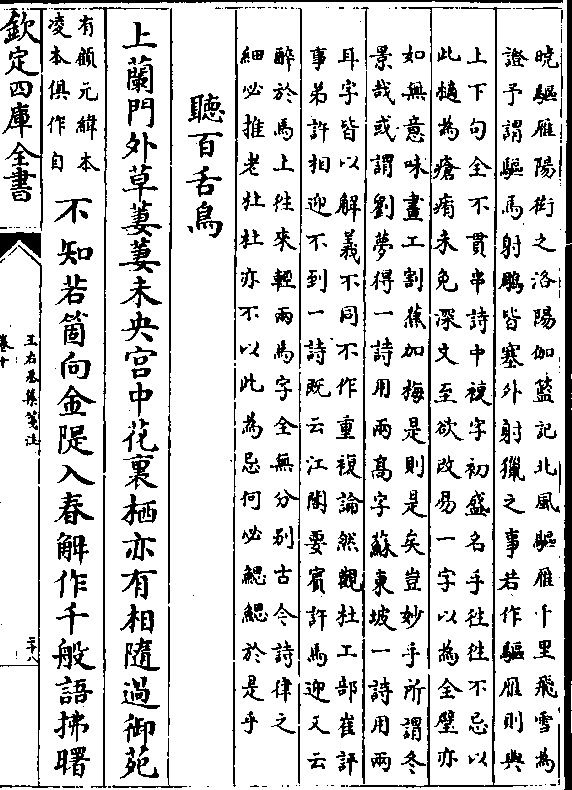 曉驅雁陽衒之洛陽伽藍記北風驅雁千里飛雪為
證予謂驅馬射鵰皆塞外射獵之事若作驅雁則與
上下句全不貫串詩中複字初盛名手往往不忌以
此槌為瘡痏未免深文至欲改易一字以為全璧亦
如無意味畫工割蕉加梅是則是矣豈妙手所謂冬
景哉或謂劉夢得一詩用兩高字蘇東坡一詩用兩
耳字皆以解義不同不作重複論然觀杜工部崔評
事弟許相迎不到一詩既云江閣要賓許馬迎又云
醉於馬上往來輕兩馬字全無分别古今詩律之
細必推老杜杜亦不以此為忌何必鰓鰓於是乎
聽百舌鳥
上蘭門外草萋萋未央宫中花裏栖亦有相隨過御苑
有顧元緯本
凌本俱作自
不知若箇向金隄入春解作千般語拂曙
欽定四庫全書
王右丞集箋注
卷十
二十八